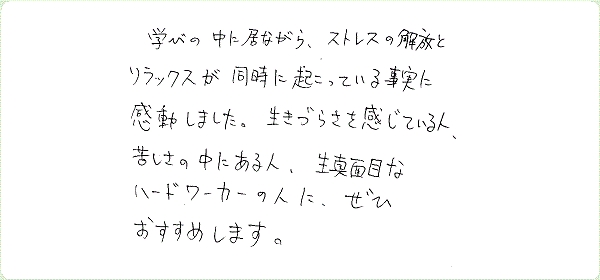 学びの中に居ながら、ストレスの解放と
リラックスが同時に起こっている事実に
感動しました。生きづらさを感じている人、
苦しさの中にある人、生真面目な
ハードワーカーの人に、ぜひ
おすすめします。